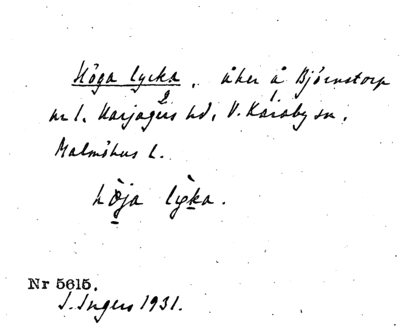 Höga lycka, åker å Björnstorp
nr 1. Harjagers hd, V. Karaby sn,
Malmöhus l.
hö̀ja lỳka.
Nr 5615.
I. Ingers 1931.